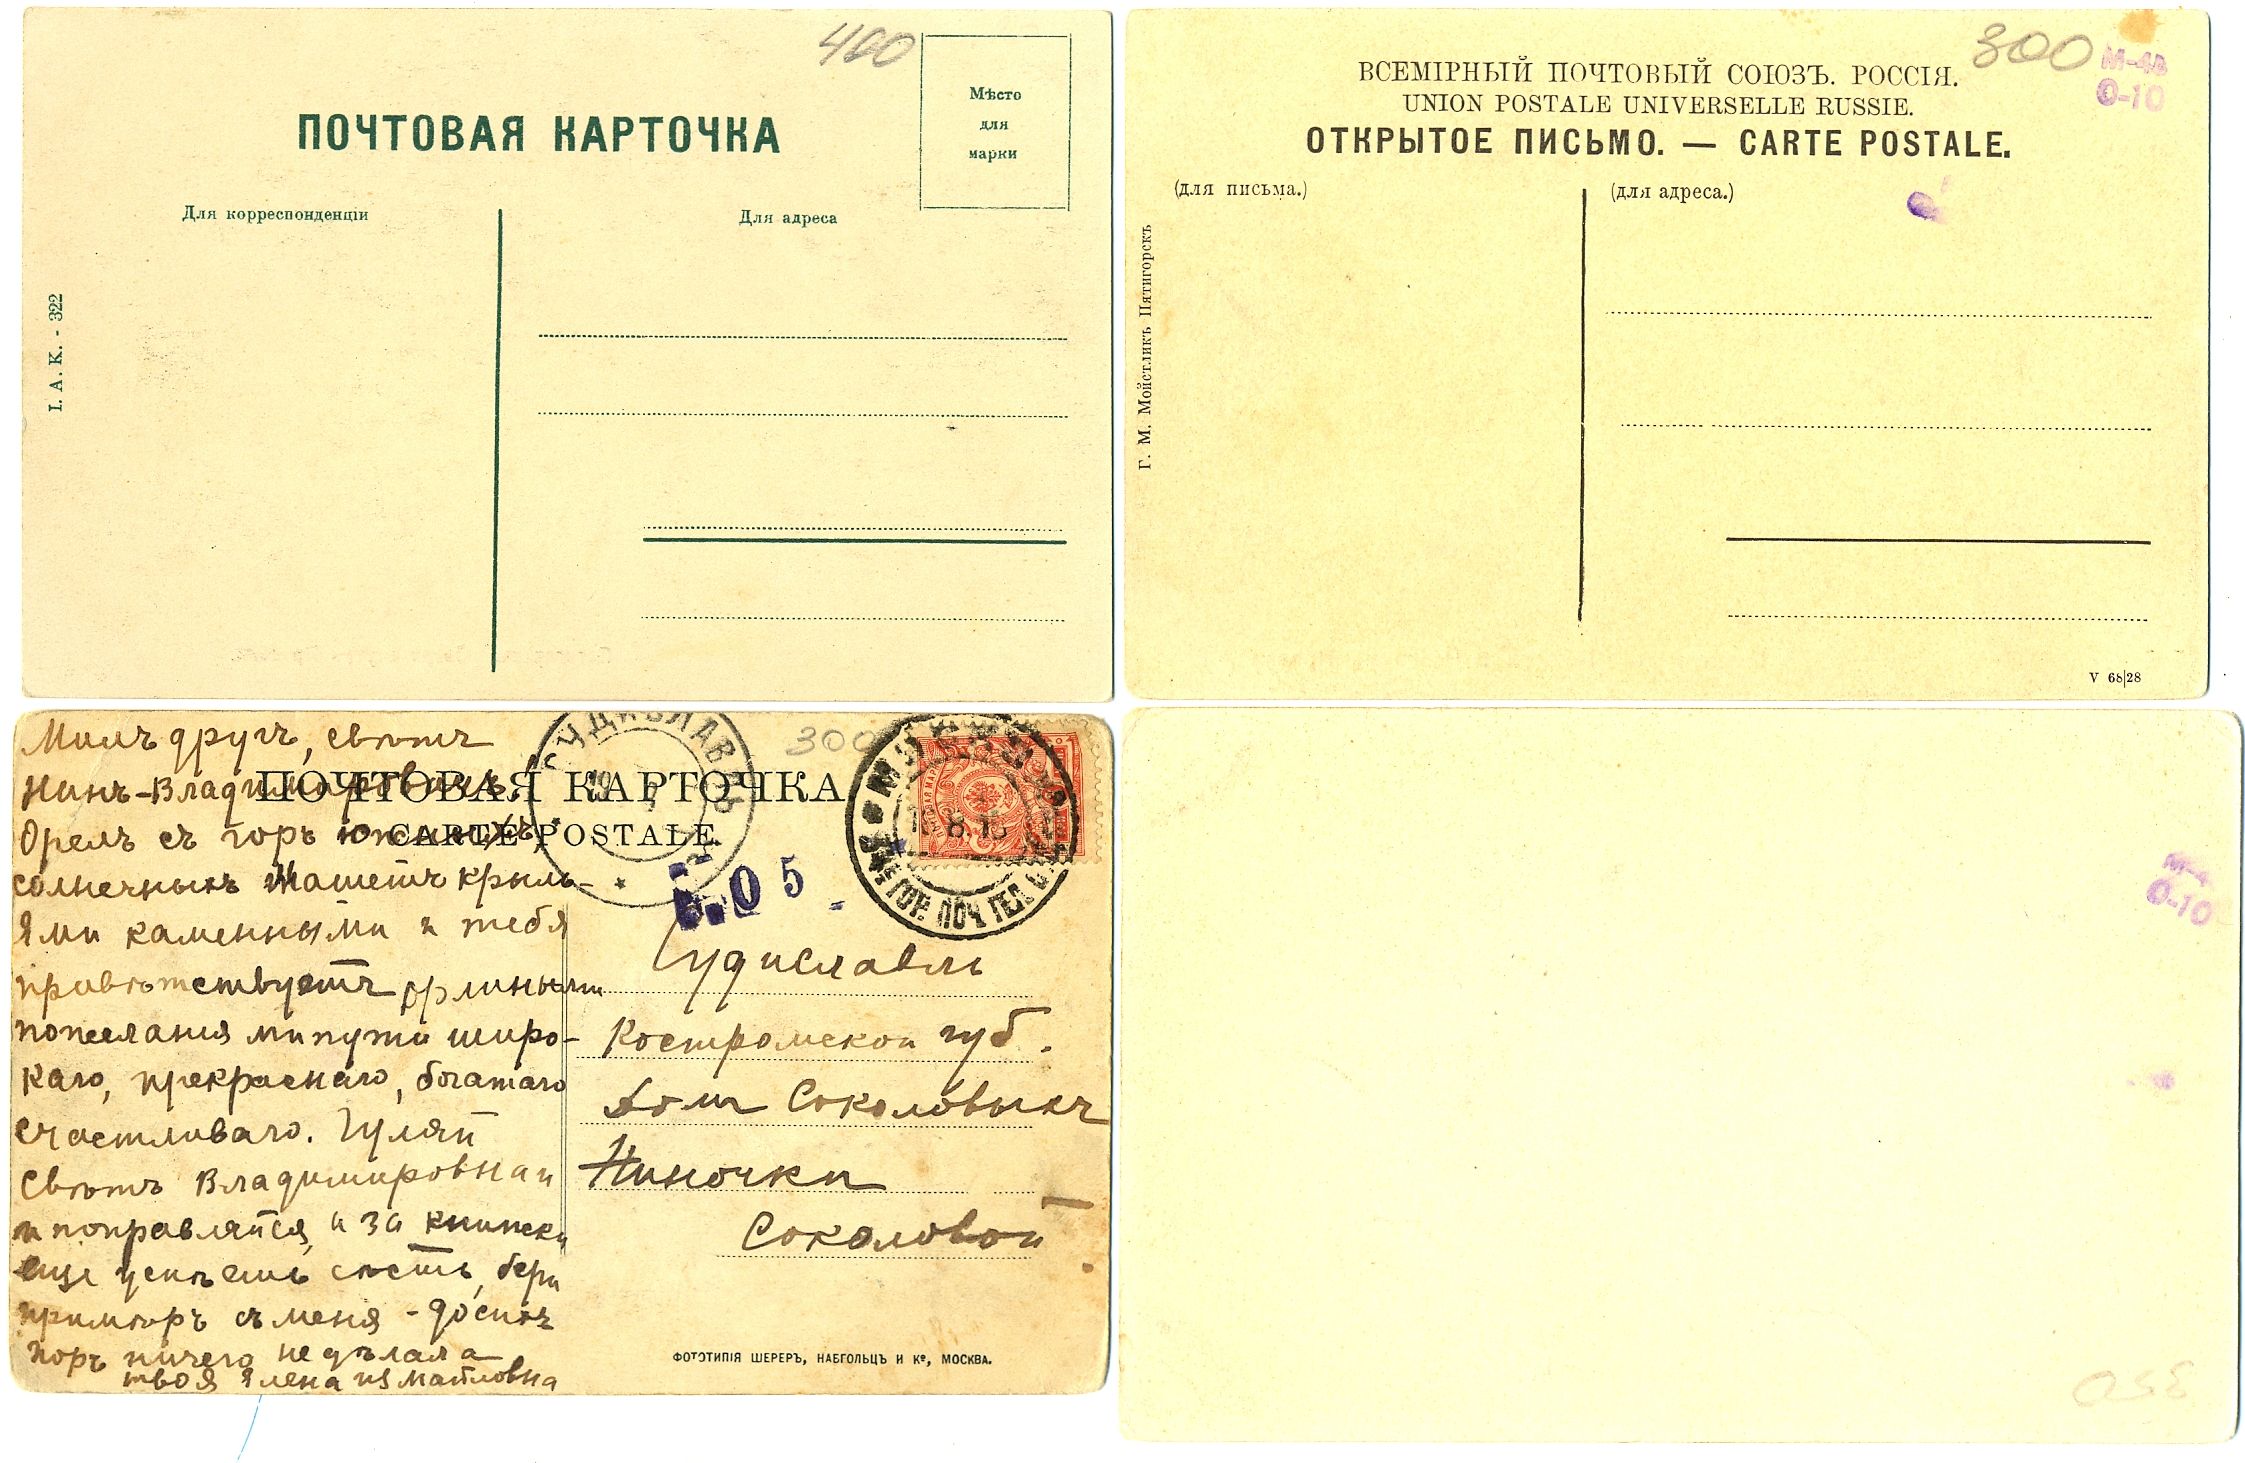 400
ПОЧТОВАЯ КАРТОЧКА
Мѣсто
для
марки
Для корреспонденціи
Для адреса
I. A. K. - 322
300
М-4
О-10
ВСЕМІРНЫЙ ПОЧТОВЫЙ СОЮЗЪ. РОССІЯ.
UNION POSTALE UNIVERSELLE RUSSIE.
ОТКРЫТОЕ ПИСЬМО. — CARTE POSTALE.
(для письма.)
(для адреса.)
Г. М. Мойстликъ Пятигорскъ
V 68|28
300
ПОЧТОВАЯ КАРТОЧКА
CARTE POSTALE.
СУДИСЛАВЛЬ
МОСКВА
ГОР. ПОЧ. ТЕЛ.
Милъ другъ, свѣтъ
Нинъ-Владимировичъ,
Орелъ съ горъ южныхъ,
солнечныхъ машетъ крыль-
ями каменными и тебя
привѣтствуетъ орлиными
пожеланіями пути широ-
каго, прекраснаго, богатаго
счастливаго. Гуляй
свѣтъ Владимировна и
и поправляйся, а за книжки
еще успѣешь сѣсть, бери
примѣръ съ меня - до сихъ
поръ ничего не дѣлала
твоя Елена Измайловна
Судиславль
Костромской губ.
Домъ Соколовыхъ
Ниночки
Соколовой
ФОТОТИПІЯ ШЕРЕРЪ, НАБГОЛЬЦЪ И Кº, МОСКВА.
М-4
О-10
350